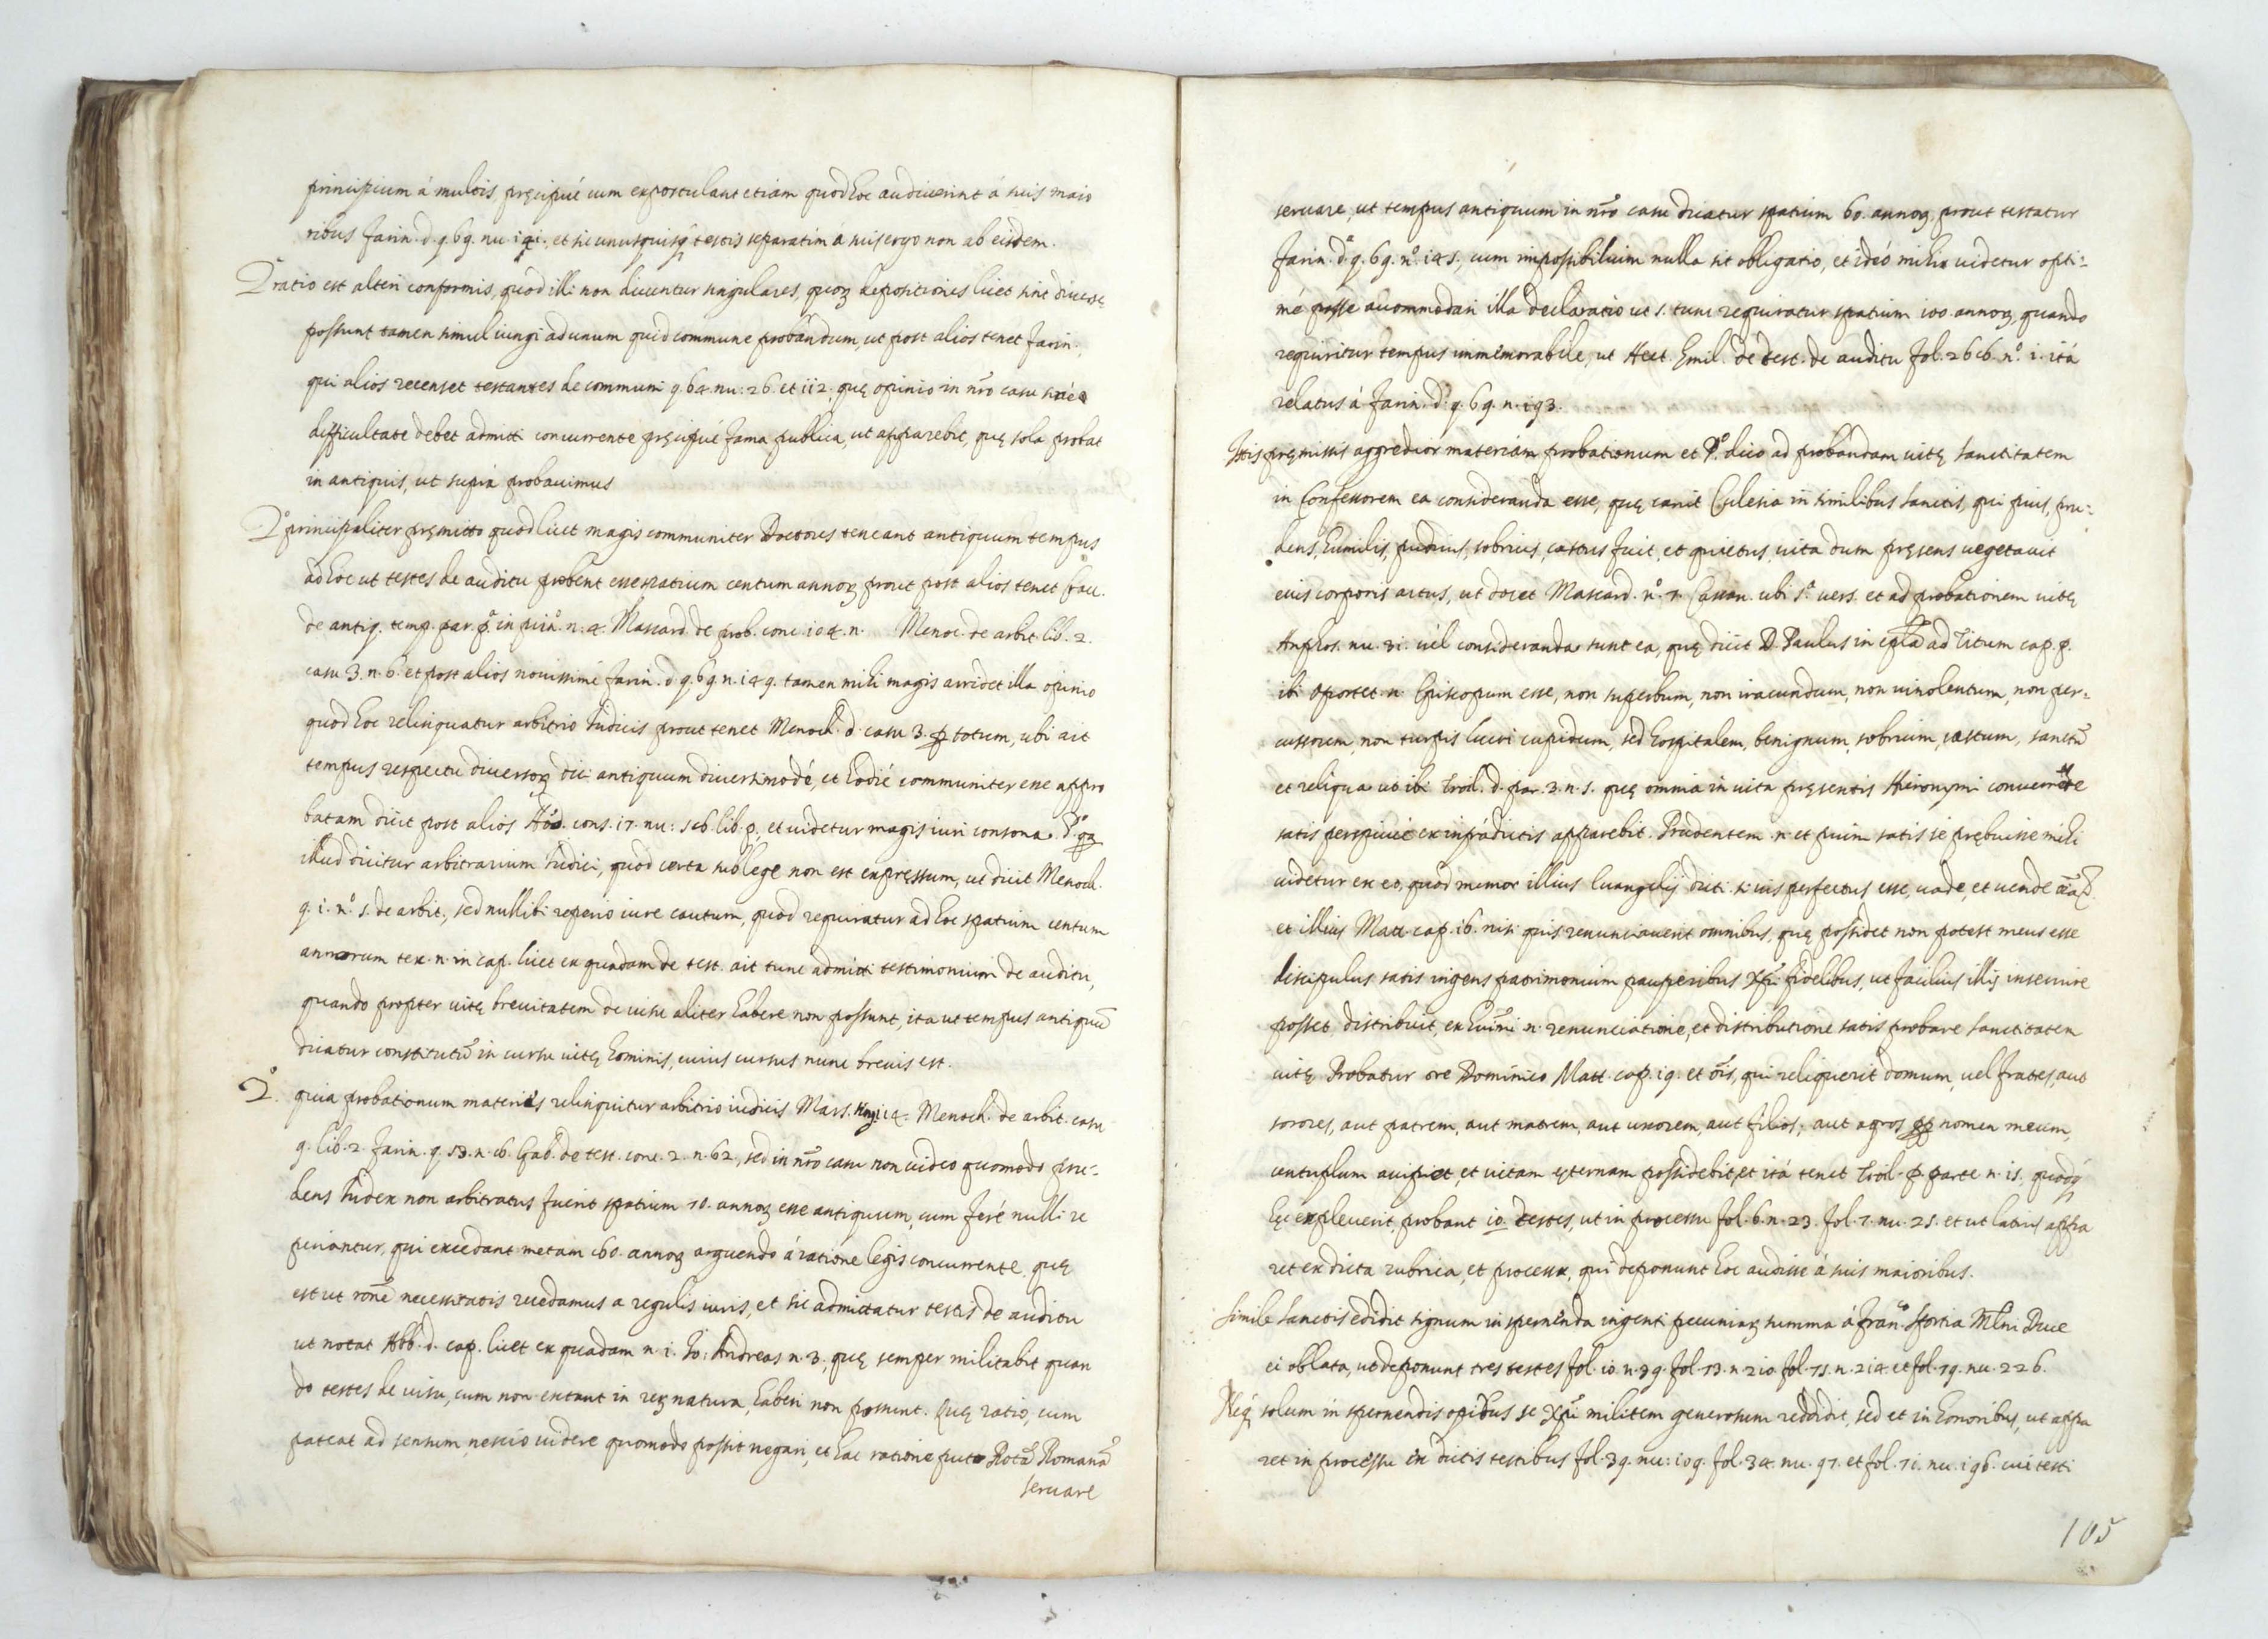 principium á multis, pręcipué cum expostulant etiam quod hoc audiverint á suis maio
ribus Farin. d. q. 69. nu. 141. et sic unusquisq testis separatim a suis ergo non ab eisdem.
2ª ratio est alteri conformis, quod illi non dicuntur singulares, quoȝ depositiones licet sint diversę
possunt tamen simul iungi ad unum quid commune probandum, ut post alios tenet Farin.
qui alios recenset testantes de communi q. 64. nu: 26. et 112. quę opinio in nro casu
difficultate debet admitti concurrente pręcipué fama publica, ut apparebit, quę sola probat
in antiquis, ut suprá probavimus
2º principaliter pręmitto quod licet magis communiter Doctores teneant antiquum tempus
ad hoc ut testes de auditu probent esse spatium centum annoȝ prout post alios tenet
de antiq. temp. par. pº in prinº n. 4. Mascard. de prob. conc. 104. n. Menoc. de arbit lib. 2.
casu 3. n. 6. et post alios novissimé Farin. d. q. 69 n. 149. tamen mihi magis arridet illa opinio
quod hoc relinquatur arbitrio Iudicis prout tenet Menoch. d. casu 3. p totum, ubi ait
tempus respectu diversoȝ dici antiquum diversimodé, et hodié communiter esse appro
batam dicit post alios cons. 17. nu: 56 lib. p. et videtur magis iuri consona. Pº qa
illud dicitur arbitrarium Iudici, quod certa sub lege non est expręssum, ut dicit Menoch.
q. 1. nº 5. de arbit., sed nullibi reperio iure cautum, quod requiratur ad hoc spatium centum
annorum tex. n. in cap. licet ex quadam de test. ait tunc admitti testimonium de auditu,
quando propter vitę brevitatem de visu aliter habere non possunt, ita ut tempus antiquū
dicatur constitutū in cursu vitę hominis, cuius cursus nunc brevis est.
2º quia probationum materies relinquitur arbitrio iudicis Mars. 14. Menoch. de arbit. casu
9. lib. 2. Farin. q. 53. n. 6. Gab. de test. conc. 2. n. 62, sed in nro casu non video quomodo pru-
dens Iudex non arbitratus fuerit spatium 50. annoȝ esse antiquum, cum feré nulli re
periantur, qui excedant metam 60. annoȝ arguendo á ratione legis concurrente quę
est ut rone necessitatis recedamus a regulis iuris, et sic admittatur testis de auditu
ut notat Abb. d. cap. licet ex quadam n. 1. Io: Andreas n. 3, quę semper militabit quan
do testes de visu, cum non extent in reȝ natura, haberi non possunt. Quę ratio, cum
pateat ad sensum, nescio videre quomodo possit negari, et hac ratione puto Rotā Romanā
servare
servare, ut tempus antiquum in nro casu dicatur spatium 60. annoȝ, prout testatur
Farin. dª q. 69. nº 145., cum impossibilium nulla sit obligatio, et ideó mihi videtur opti-
mé posse accommodari illa declaratio ut s. tunc requiratur spatium 100. annoȝ, quando
requiritur tempus immemorabile, ut Hect. Emil. de test. de auditu fol. 266. nº 1. itá
relatus á Farin. dª q. 69. n. 193.
Itis pręmissis aggredior materiam probationum et Pº dico ad probandam vitę sanctitatem
in Confessorem ea consideranda esse, quę canit Ecclesia in similibus sanctis, qui pius, pru-
dens, humilis, pudicus, sobrius, castus fuit, et quietus, vita dum pręsens vegetavit
eius corporis artus, ut docet Mascard. nº 7. Cassan. ubi sª vers. et ad probationem vitę
nu. 31. vél consideranda sunt ea, quę dicit D. Paulus in epla ad Titum cap. p.
ibi oportet n. Episcopum esse, non superbum, non iracundum, non vinolentum, non per-
cussorem, non turpis lucri cupidum, sed hospitalem, benignum, sobrium, castum, sanctū
et reliqua ut ibi Troil. d. par. 3. n. 5. quę omnia in vita pręsentis Hieronymi
satis perspicué ex infrádictis apparebit. Prudentem n. et puim satis se prębuisse mihi
videtur ex eo, quod memor illius Evangelij dicti si vis perfectus esse, vade, et vende
et illius Matt. cap. 16. nisi quis renunciaverit omnibus, quę possidet non potest meus esse
discipulus satis ingens patrimonium pauperibus Xpi fidelibus, ut facilius illis inservire
posset distribuit, ex n. renunciatione, et distributione satis probare sanctitatem
vitę Probatur ore Dominico Matt. cap. 19. et ois, qui reliquerit domum, vel fratres, aut
sorores, aut patrem, aut matrem, aut uxorem, aut filios, aut agros pp nomen meum,
centuplum accipiet et vitam ęternam possidebit, et itá tenet Troil. p. parte n. 15. quod
expleverit, probant 10. testes, ut in processu fol. 6. n. 23. fol. 7. nu. 25. et ut latius appa
ret ex dicta rubrica, et processu, qui deponunt hoc audisse á suis maioribus.
Simile sanctis edidit signum in spernenda ingenti pecuniaȝ summa á Franco Sfortia Mlni Duce
ei oblata, ut deponunt tres testes fol. 10. n. 39. fol. 73. n. 210. fol. 75. n. 214. et fol. 79. nu. 226.
Neq solum in spernendis opibus se Xpi militem generosum reddidit, sed et in honoribus, ut appa
ret in processu ex dictis testibus fol. 39. nu: 109. fol. 34. nu. 97. et fol. 71. nu. 196. cui testi
105